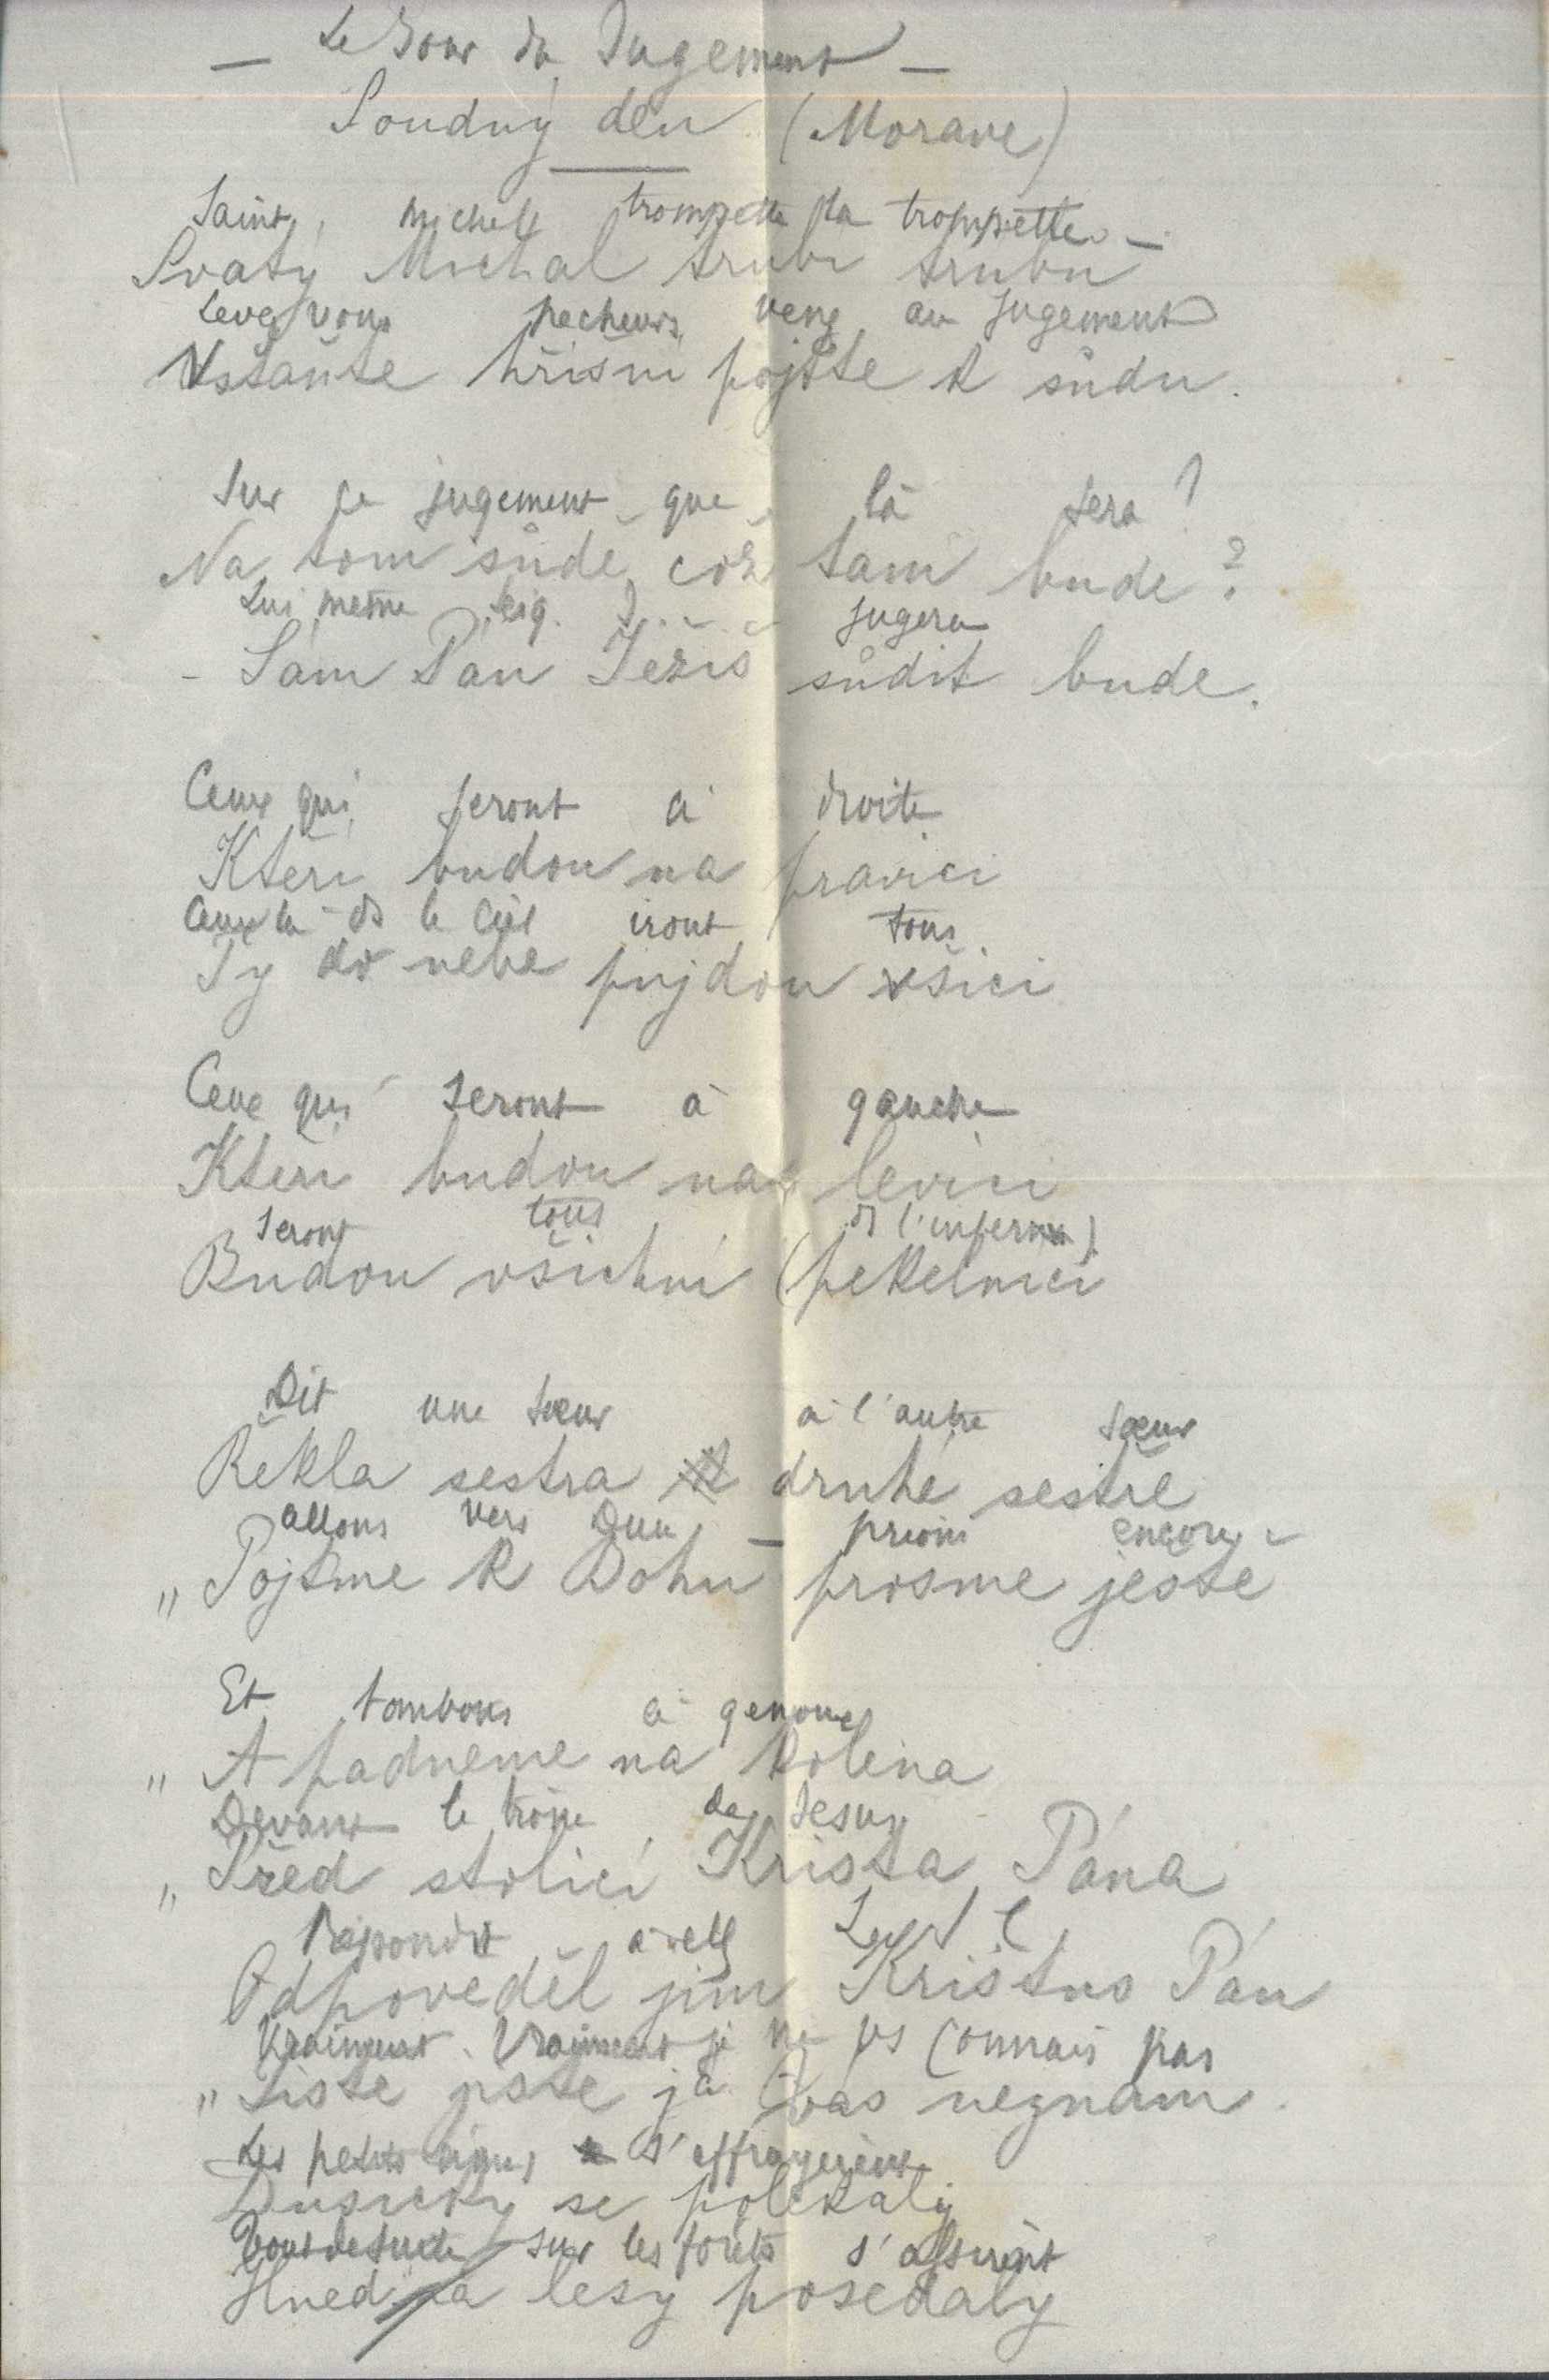 — Le Jour du Jugement —
Soudný den (Morave)
Saint Michel trompette la trompette —
Svaty Michal trubi trubu
Levez vous pecheurs venez au jugement
Vstaňte hřišni pojďte k sůdu.
Sur ce jugement que là sera ?
Na tom sůdě což tam bude ?
Lui même Seig. J.
- Sám Pán Ježiš sůdit bude.
jugera
Ceux qui seront à droite
Kteři budou na pravici
Ceux là ds le Ciel iront tous
Ty do nebe pujdou všici
Ceux qui seront à gauche
Kteři budou na levici
seront tous ds l'infern)
Budou všichni (pekelnici
Dit une sœur à l'autre sœur
Řekla sestra druhé sestře
allons vers Dieu — prions encore
„ Pojďme k Bohu prosme ješte
Et tombons à genoux
„ A padneme na kolena
Devant le trône de Jesus
„ Před stolicí Krista Pána
Repondit à elle
Odpověděl jim Kristus Pán
Vraiment. Vraiment je ne vs connais pas
„ Jistě jistě já vás neznám.
Les petits âmes s'effrayerent
Dušičky se polekaly
Tout de suite sur les forêts s'assirent
Hned na lesy posedaly